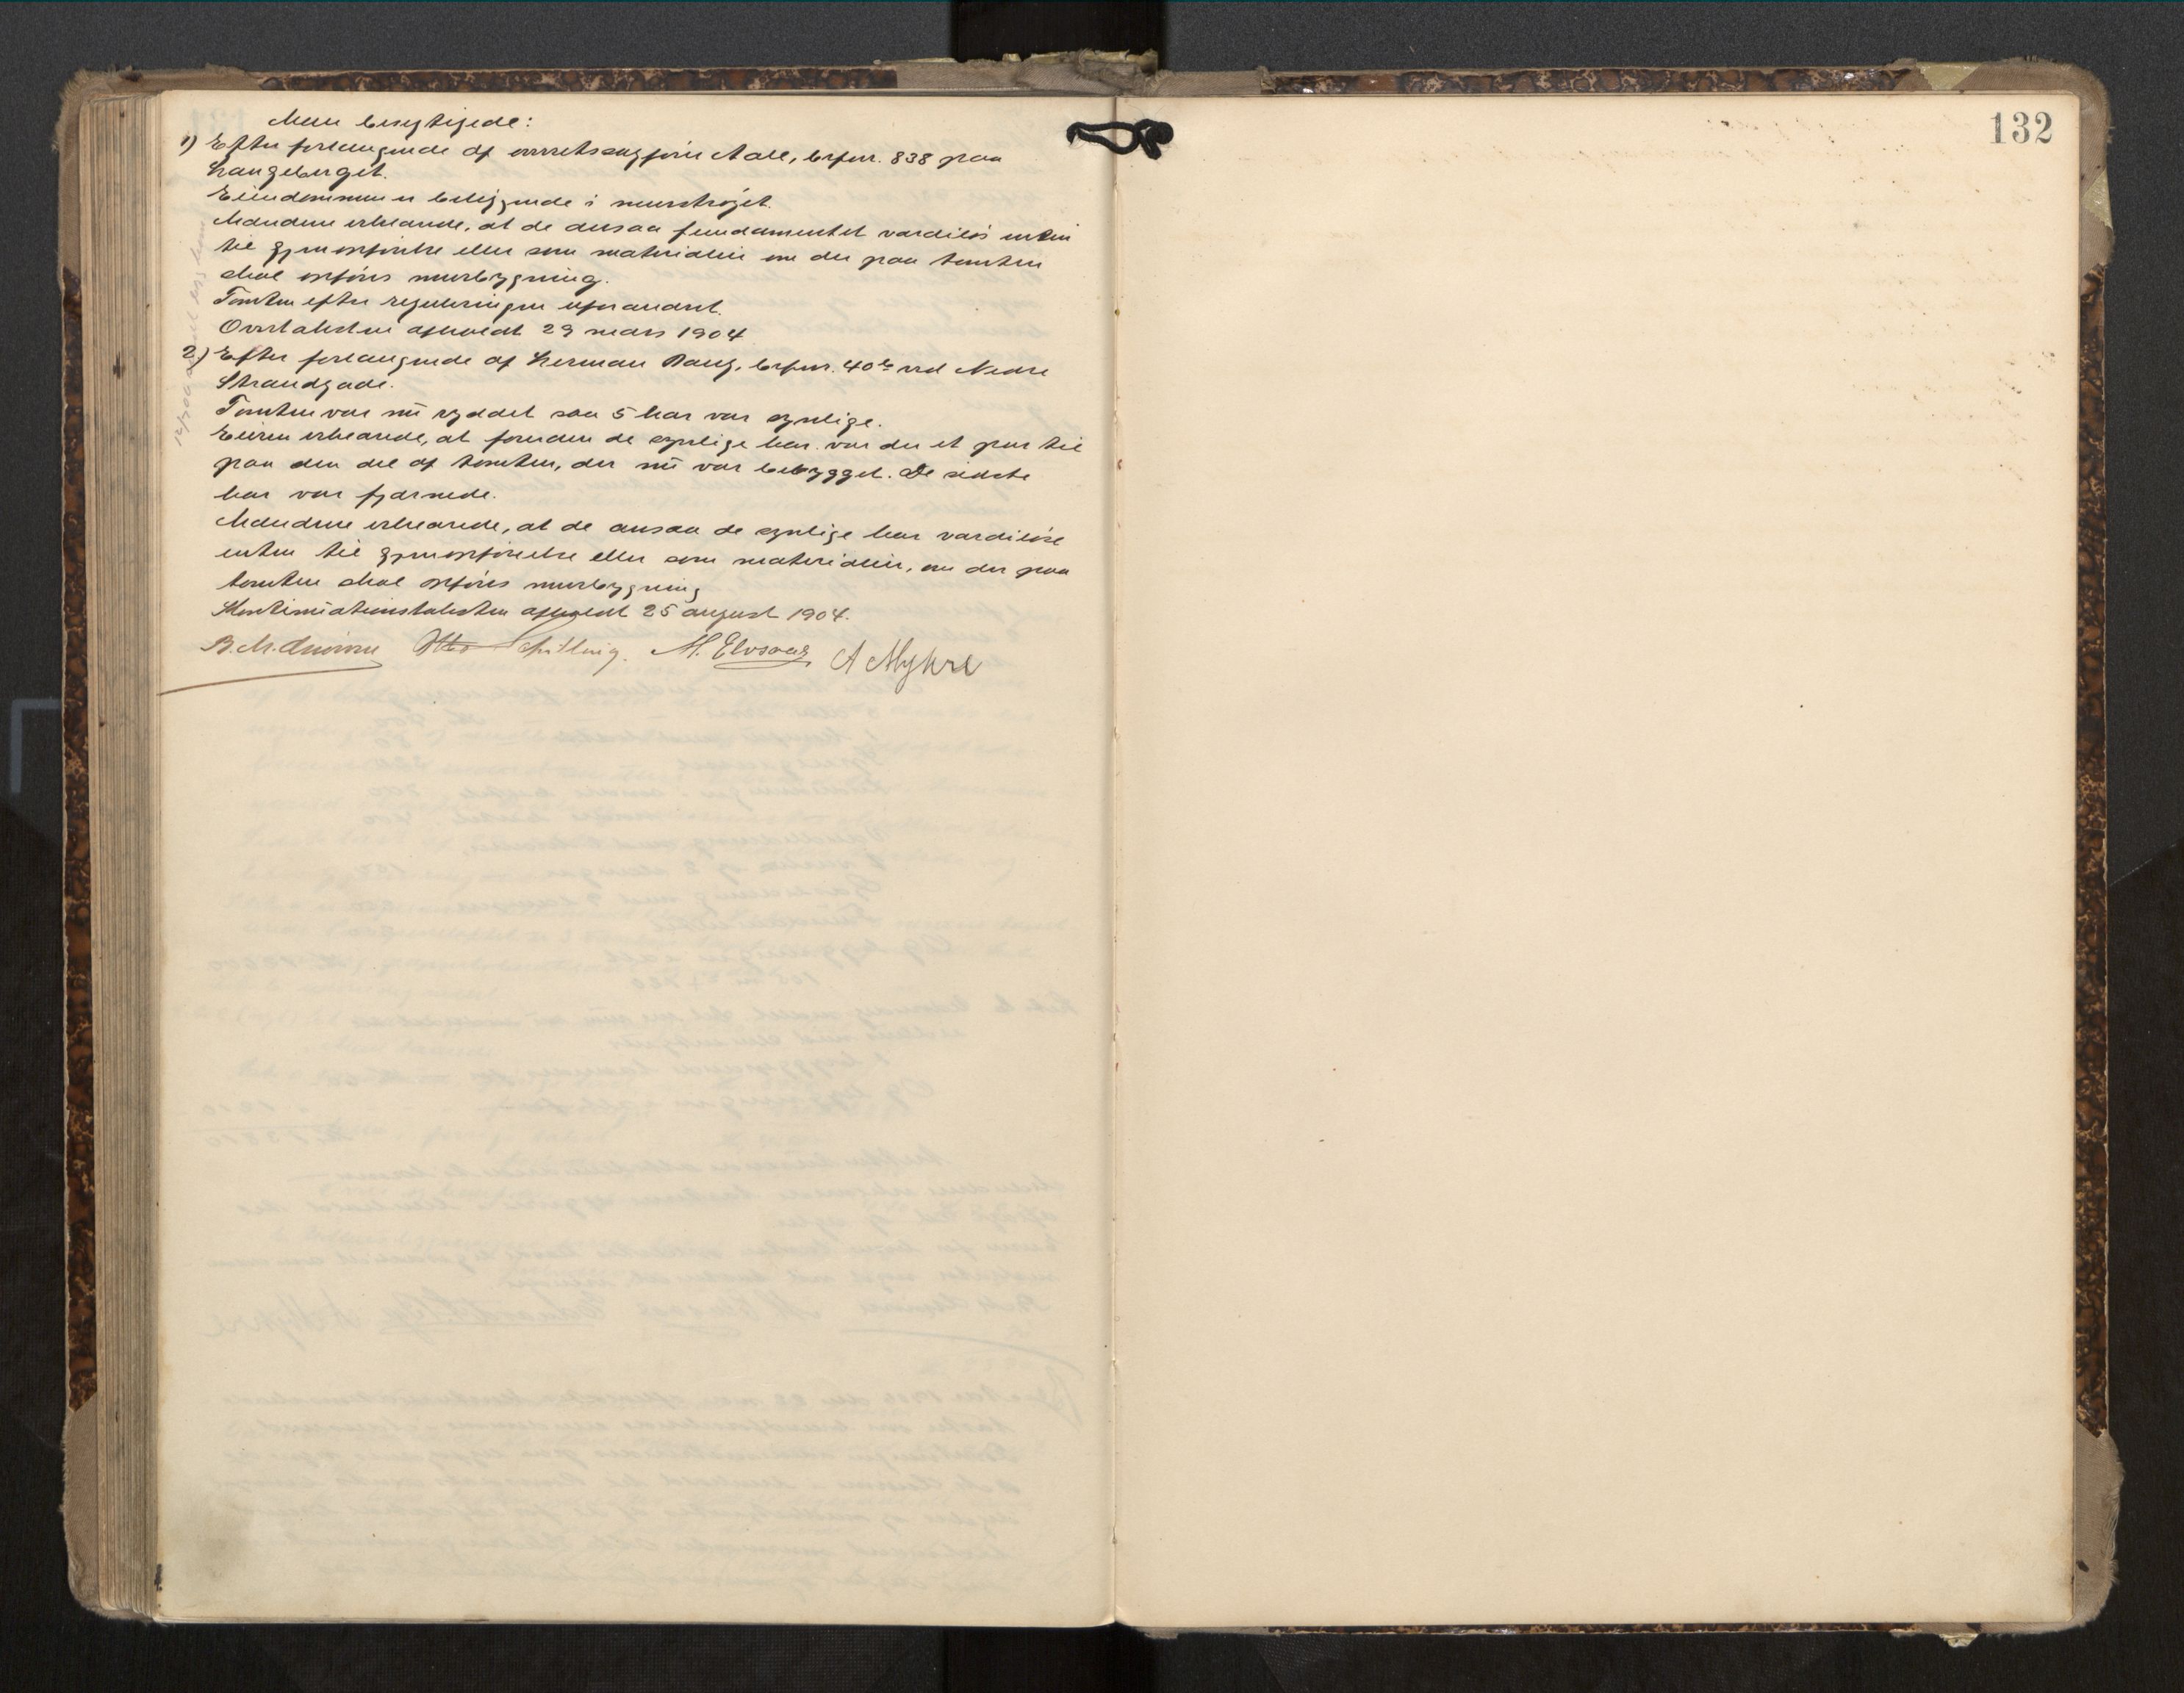 Man besigtigede:
1) Efter forlangende af overretssagfører Aall, brfnr. 838 paa
Langeberget.
Eiendommen er beliggende i murstrøget.
Mændene erklærede, at de ansaa fundamentet værdiløs enten
til gjenopførelse eller som materialier om der paa tomten
skal opføres murbygning.
Tomten efter reguleringen uforandret.
Overtaksten afholdt 29 mars 1904
2) Efter forlangende af Herman Bang, brfnr. 40 ved Nedre
Strandgade.
Tomten var nu ryddet saa 5 kar var synlige.
Eieren erklærede, at foruden de synlige kar var der et par til
paa den del af tomten, der nu var bebygget. De sidste
kar var fjærnede.
Mændene erklærede, at de ansaa de synlige kar værdiløse
enten til gjenopførelse eller som materialier, om der paa
tomten skal opføres murbygning
Kontinuationstaksten afholdt 25 august 1904.
Otto Schilling. M. Elvsaas A Myhre
132